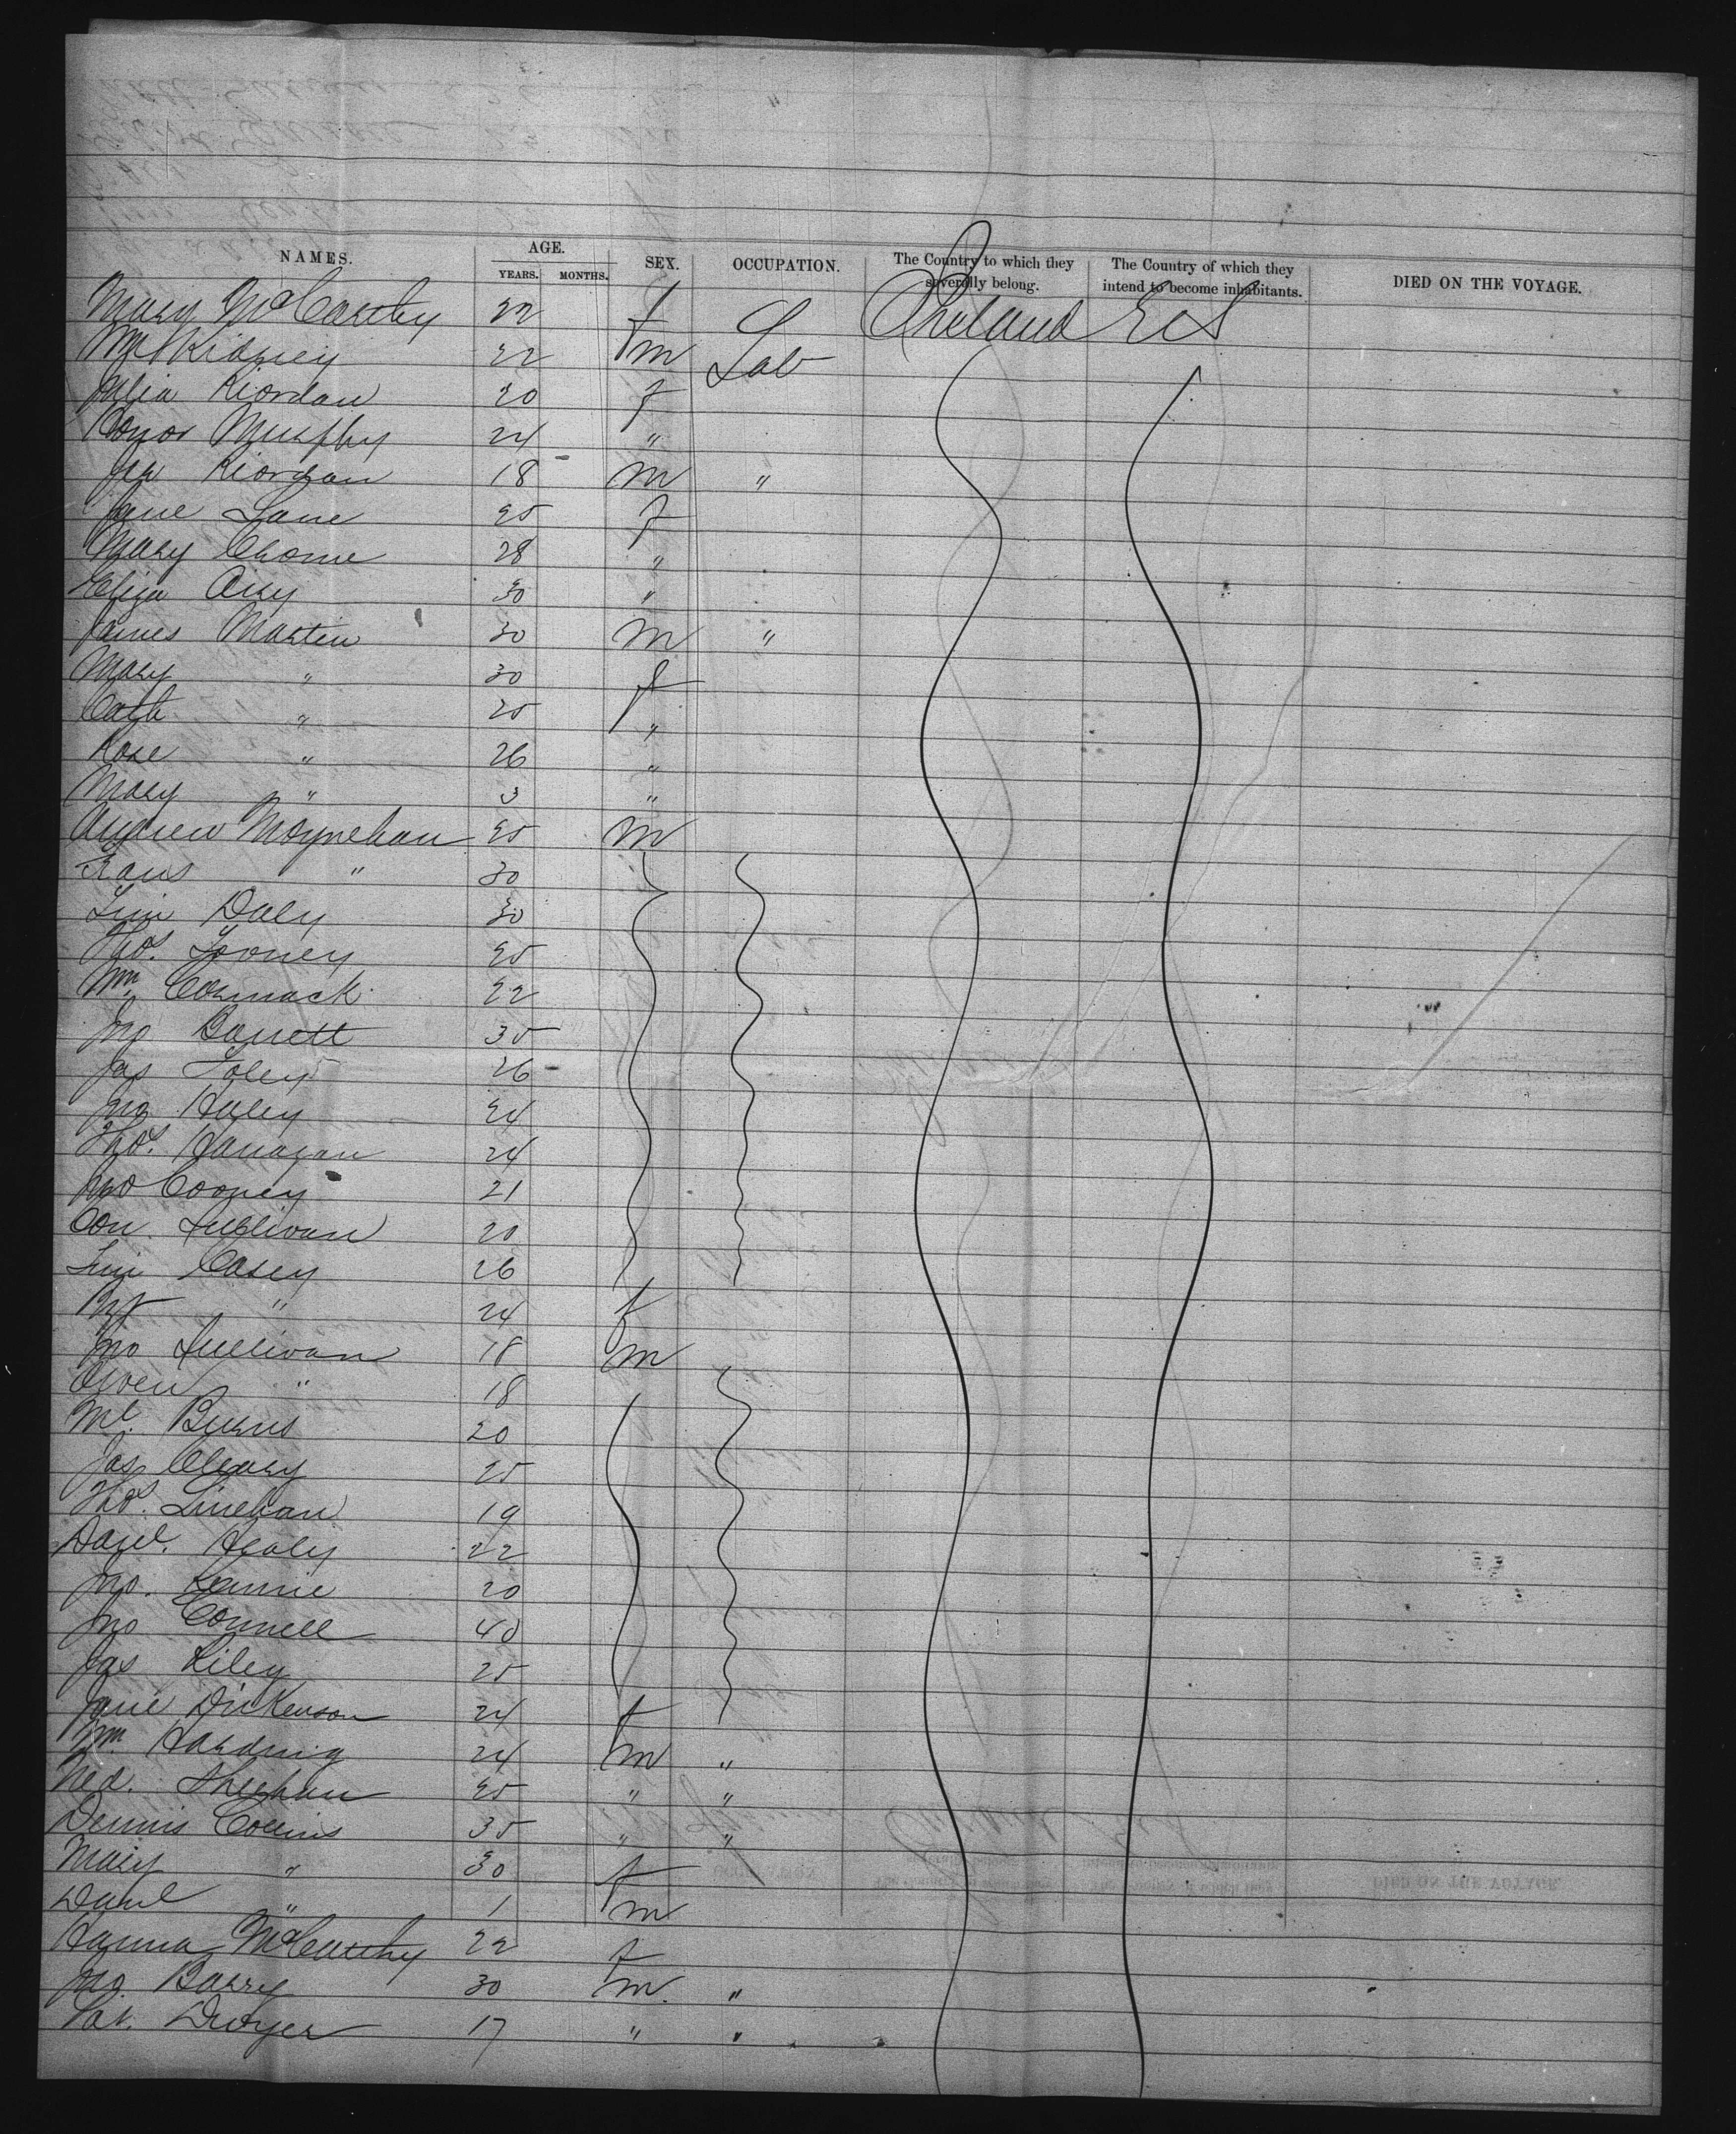 NAMES. AGE. SEX. OCCUPATION. The Country to which they severally belong. The Country of which they intend to become inhabitants. DIED ON THE VOYAGE.
YEARS. MONTHS.
Mary McCarthy 22 f Ireland U S
Wm Kidney 22 m Lab
Julia Riordan 20 f
Conor Murphy 24 "
Riordan 18 m "
Jane Lane 25 f
Mary 28 "
Eliza 30 "
James Martin 30 m "
Mary " 30 f
Cath " 25 "
Rose " 26 "
Mary " 3 "
Andrew Moynehan 25 m
Frans " 30
Tim Daly 30
Thos. Tooney 25
Wm. Cormack 22
Jno Barrett 35
Jas Foley 26
Jno Haley 24
Thos. Hanagan 24
Jno Cooney 21
Con. Sullivan 20
Tim Casey 26
" 24 f
Jno Sullivan 18 m
Owen " 18
Ml. Burns 20
Jas Cleary 25
Thos. Linehan 19
Danl. Healy 22
Jno. 20
Jno Connell 40
Jas Riley 25
Jane Dickenson 24 f
Wm Harding 24 m "
Ned. Sheehan 25 " "
Dennis Collins 35 " "
Mary " 30 f
Danl " 1 m
Hanna McCarthy 22 f
Jno. Barry 30 m "
Pat. Dwyer 17 " "